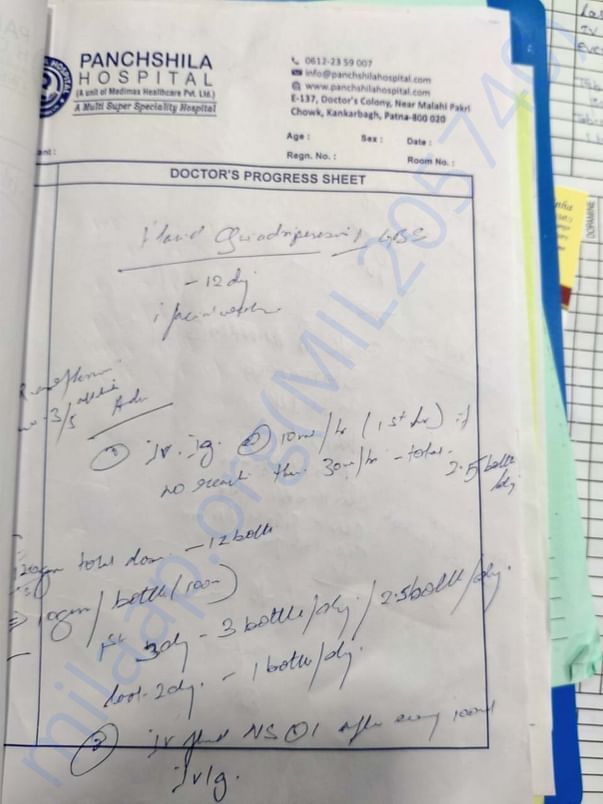 PANCHSHILA
HOSPITAL
(A unit of Medimax Healthcare Pvt. Ltd.)
A Multi Super Speciality Hospital
0612-23 59 007
info@panchshilahospital.com
www.panchshilahospital.com
E-137, Doctor's Colony, Near Malahi Pakri
Chowk, Kankarbagh, Patna-800 020
Age : Sex : Date :
Regn. No. : Room No. :
DOCTOR'S PROGRESS SHEET
Quadriparesis GBS
- 12 dy
3/5
Adv
① Iv. Ig. @ 10ml/hr (1st hr) if
no reach then 30ml/hr - total.
2.5 bottle
/dy
total dose - 12 bottle
10gm / bottle (100ml)
1st 3dy - 3 bottle/dy / 2.5 bottle/dy.
last 2dy. - 1 bottle/dy.
② Iv fluid NS ① after every 100ml
Iv Ig.
DOPAMINE
milaap.org(MIL2057401